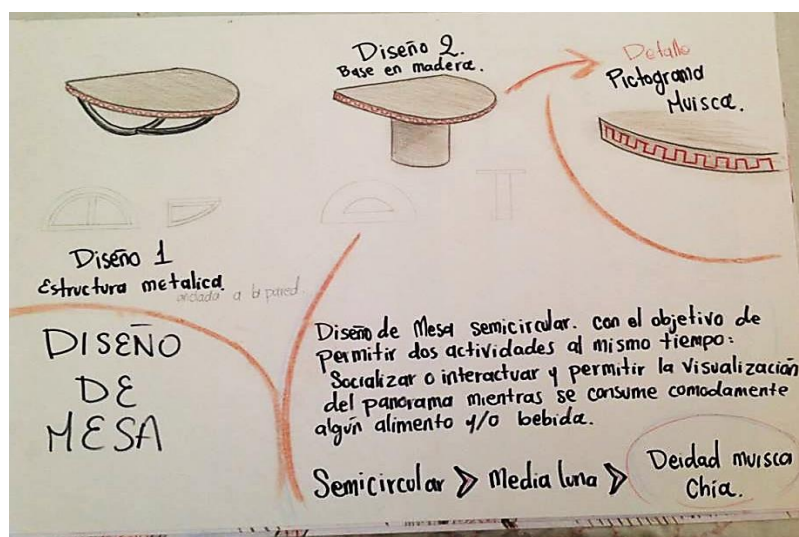 Diseño 2.
Base en madera.
Detalle
Pictograma
Muisca.
Diseño 1
Estructura metalica.
anclada a la pared.
DISEÑO
DE
MESA
Diseño de Mesa semicircular. con el objetivo de
Permitir dos actividades al mismo tiempo:
Socializar o interactuar y permitir la visualización
del panorama mientras se consume comodamente
algún alimento y/o bebida.
Semicircular > Media luna > Deidad muisca
Chía.